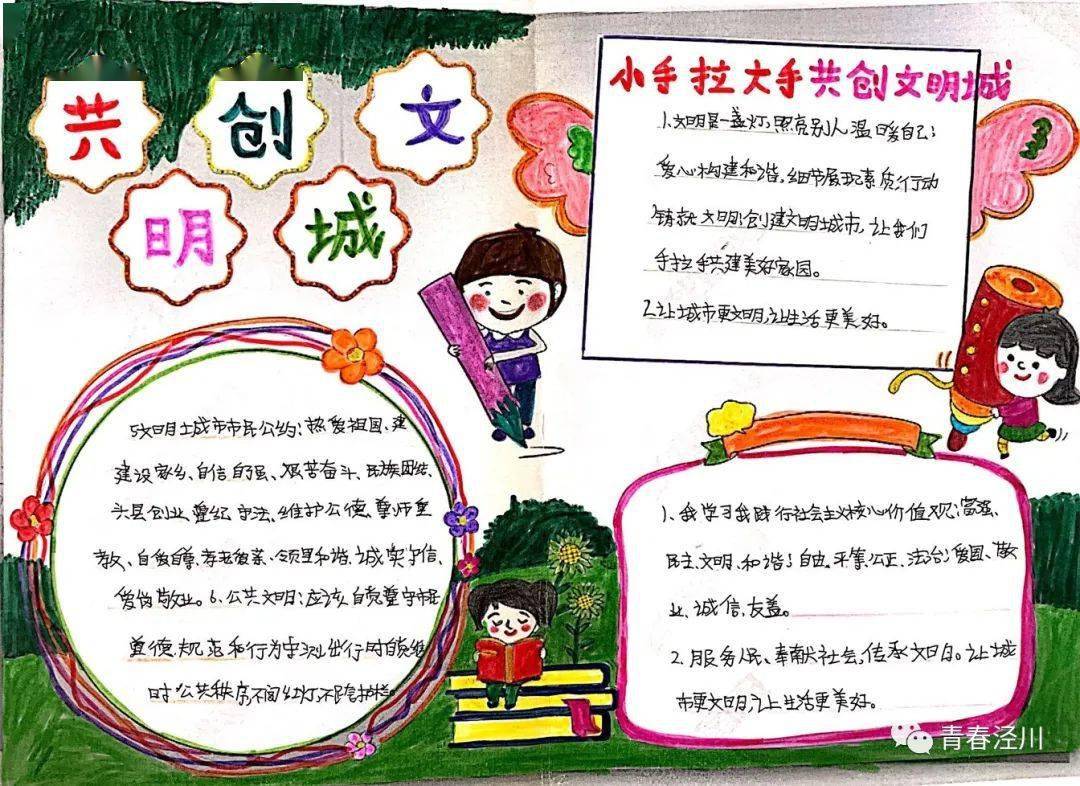 共创文
明城
小手拉大手共创文明城
1.文明是一盏灯,照亮别人温暖自己;
爱心构建和谐,细节展现素质,行动
铸就文明;创建文明城市,让我们
手拉手共建美好家园。
2.让城市更文明,让生活更美好。
5文明城市市民公约:热爱祖国、建
建设家乡、自信自强、艰苦奋斗、民族团结、
创业、遵纪守法、维护公德、尊师重
教、自爱自尊、孝老爱亲、邻里和谐、诚实守信、
爱岗敬业。6.公共文明:应该自觉遵守市民
道德规范和行为守则,出行时自觉维
时公共秩序,不闯红灯,不跨护栏。
1、我学习我践行社会主义核心价值观:富强、
民主、文明、和谐;自由、平等、公正、法治;爱国、敬
业、诚信、友善。
2.服务人民、奉献社会,传承文明。让城
市更文明,让生活更美好。
青春泾川